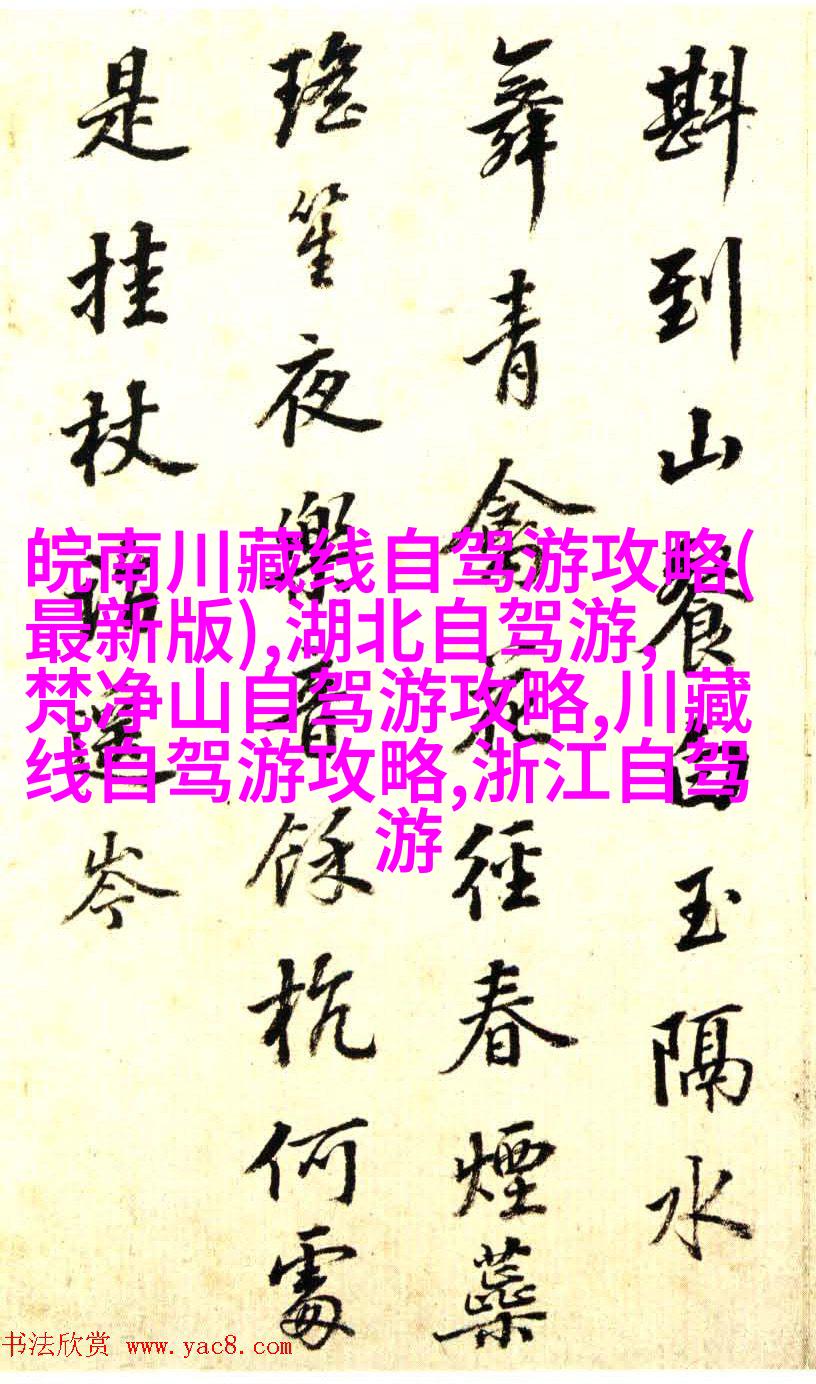 斟到山餐白玉隔水
舞青禽花徑春煙蘂
瑤笙夜樂餘杭何處
是挂杖遥岑
皖南川藏线自驾游攻略(
最新版),湖北自驾游,
梵净山自驾游攻略,川藏
线自驾游攻略,浙江自驾
游
书法欣赏 www.yac8.com